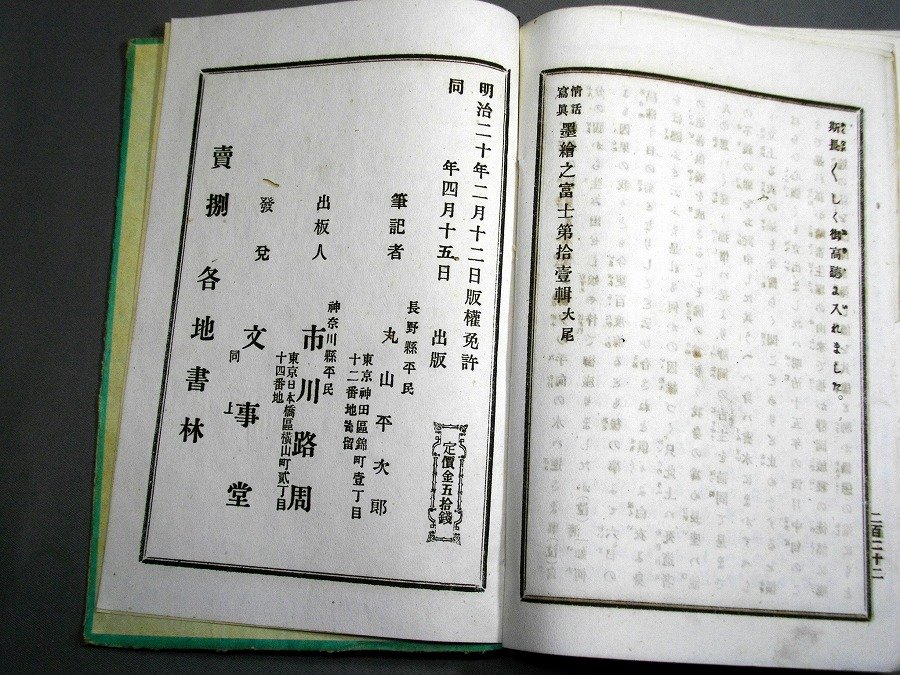 斯長〱しく御高聽に入れました。
情話
寫眞
墨繪之富士第拾壹輯大尾
二百二十二
明治二十年二月十二日版權免許
同年四月十五日出版
定價金五拾錢
長野縣平民
筆記者
丸山平次郎
東京神田區錦町壹丁目
十二番地寄留
神奈川縣平民
出板人
市川路周
東京日本橋區橫山町貳丁目
十四番地
發兌
文事堂
同上
賣捌各地書林